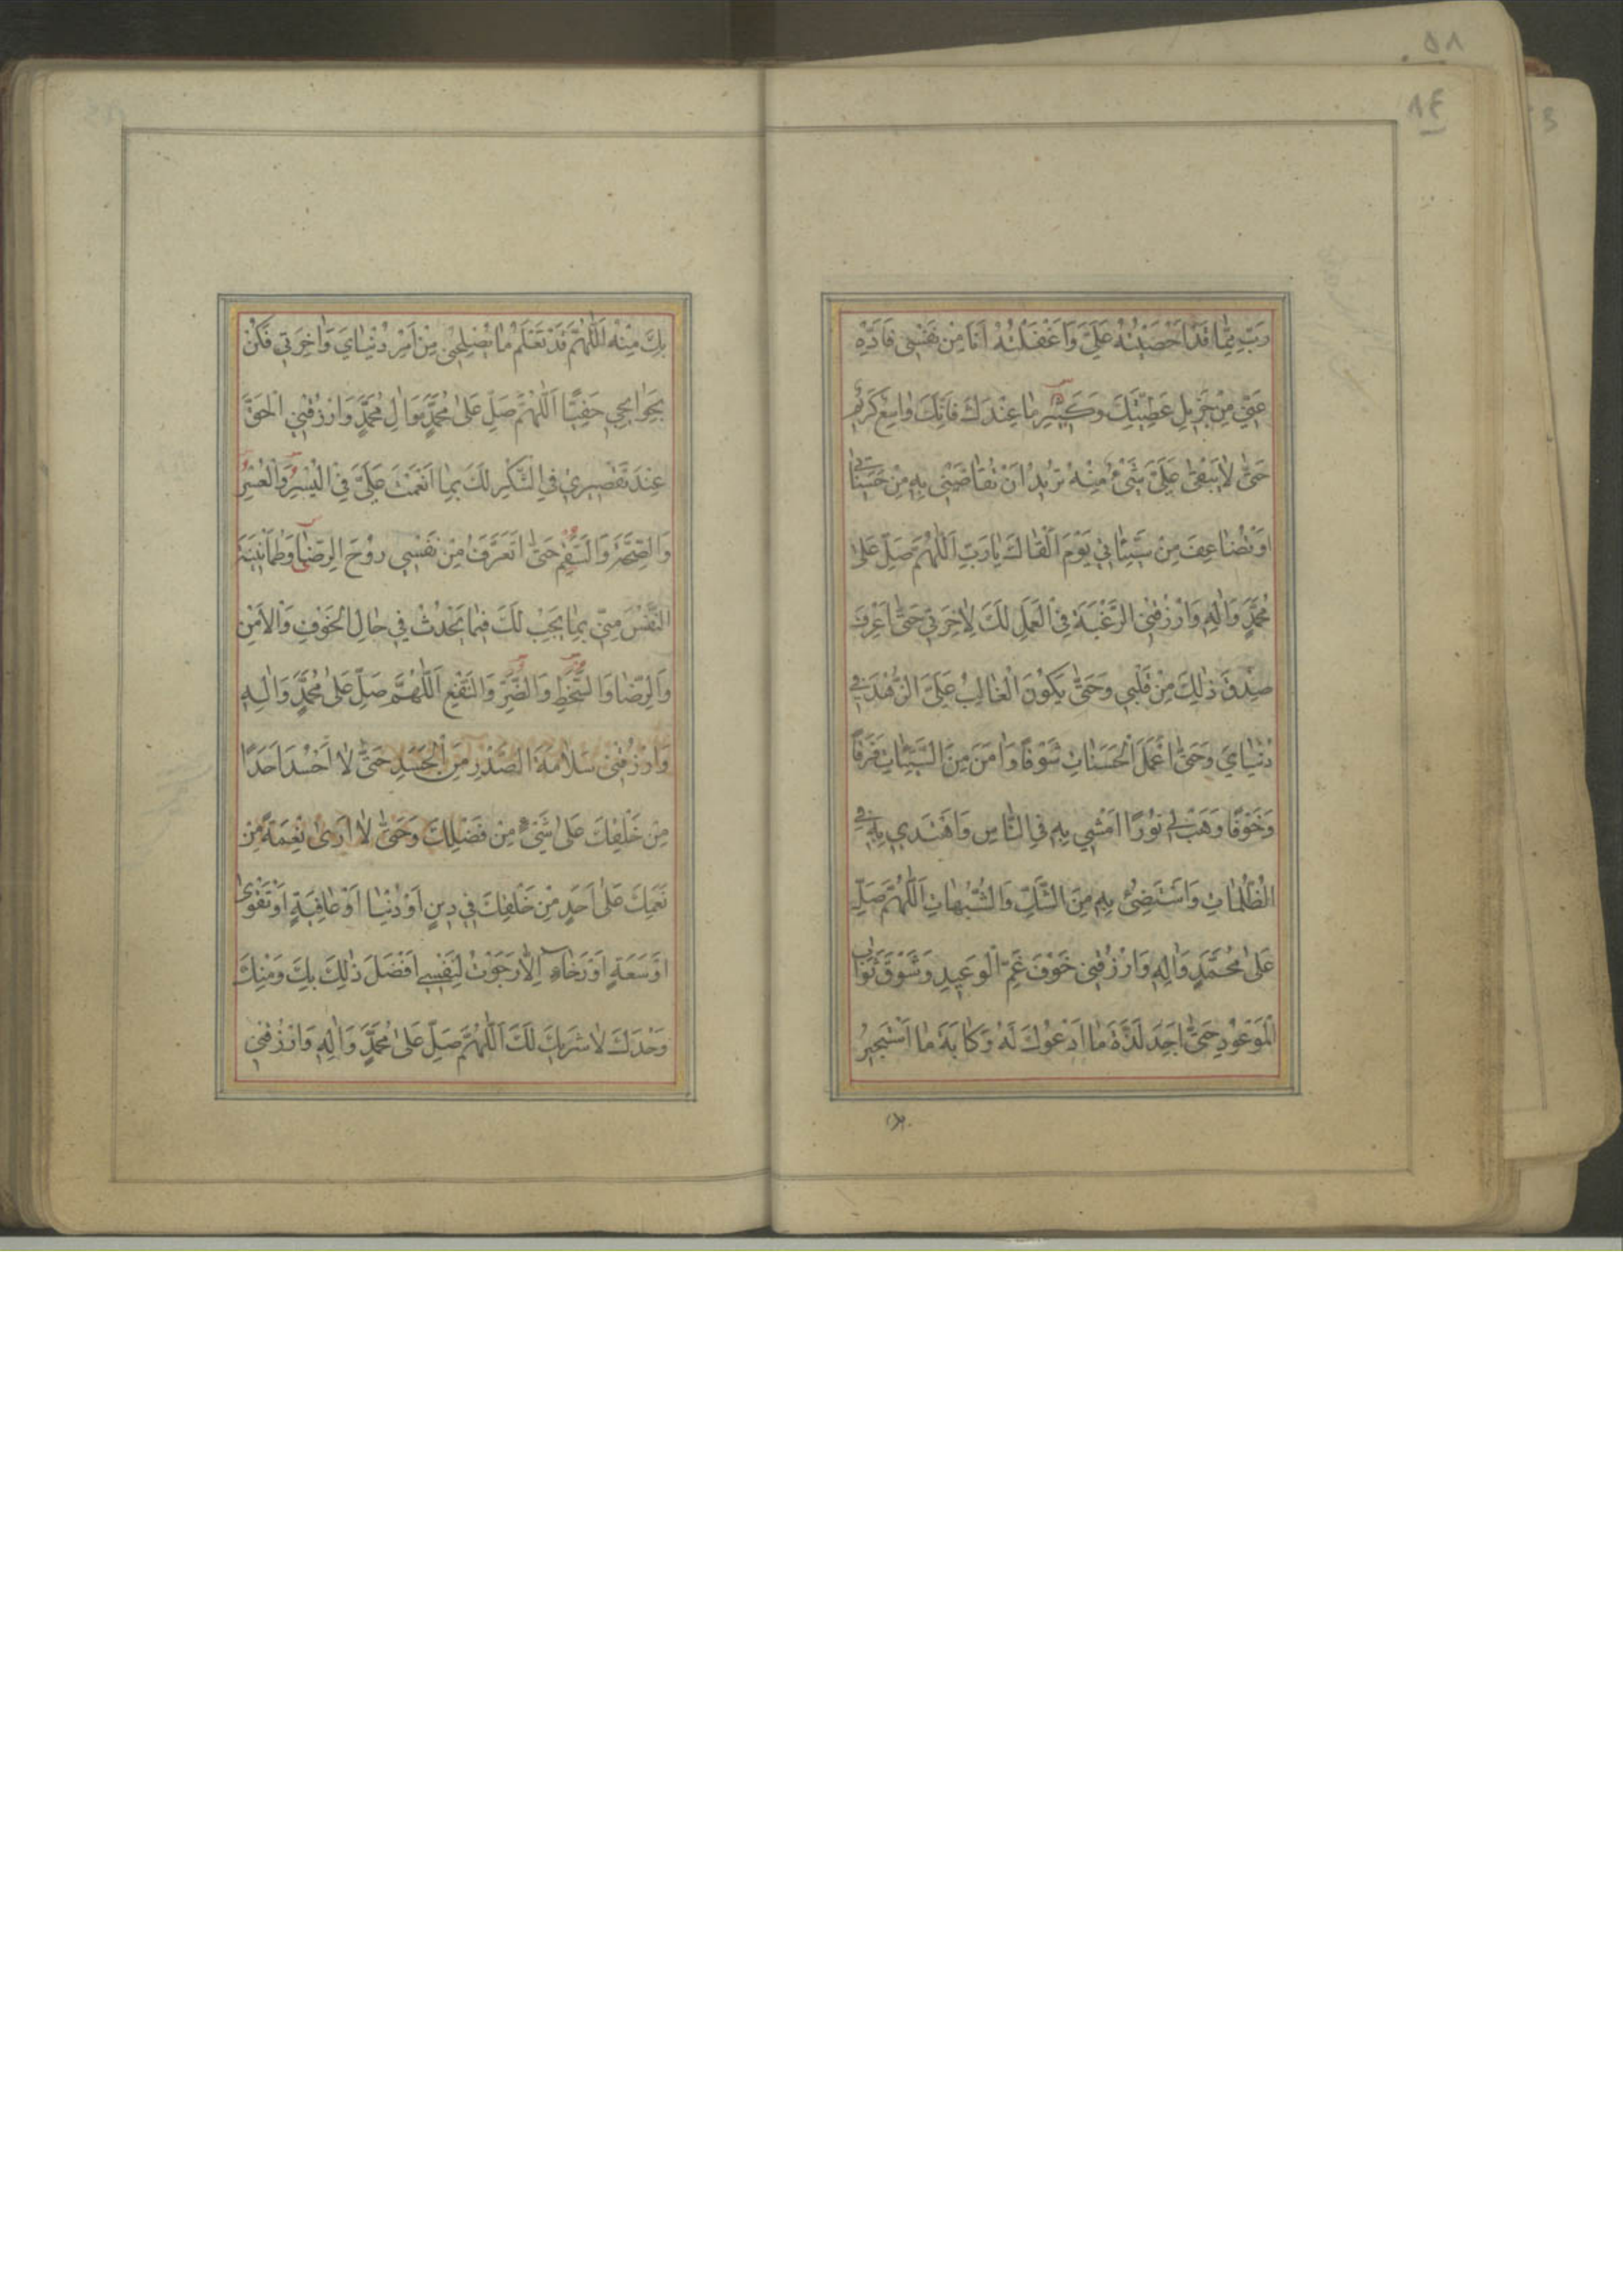 ٨٤
رَبِّ مِمَّا قَدْ اَحْصَيْتَهُ عَلَيَّ وَاَغْفَلْتُهُ اَنَا مِنْ نَفْسِي فَاَدِّهِ
عَنِّي مِنْ جَزِيلِ عَطِيَّتِكَ وَكَثِيرِ مَا عِنْدَكَ فَاِنَّكَ وَاسِعٌ كَرِيمٌ
حَتَّى لَا يَبْقَى عَلَيَّ شَيْءٌ مِنْهُ تُرِيدُ اَنْ تُقَاصَّنِي بِهِ مِنْ حَسَنَاتِي
اَوْ تُضَاعِفَ مِنْ سَيِّئَاتِي يَوْمَ اَلْقَاكَ يَا رَبِّ اَللّٰهُمَّ صَلِّ عَلَى
مُحَمَّدٍ وَاٰلِهِ وَارْزُقْنِي الرَّغْبَةَ فِي الْعَمَلِ لَكَ لِاٰخِرَتِي حَتَّى اَعْرِفَ
صِدْقَ ذٰلِكَ مِنْ قَلْبِي وَحَتَّى يَكُونَ الْغَالِبُ عَلَيَّ الزُّهْدَ فِي
دُنْيَايَ وَحَتَّى اَعْمَلَ الْحَسَنَاتِ شَوْقًا وَاٰمَنَ مِنَ السَّيِّئَاتِ فَرَقًا
وَخَوْفًا وَهَبْ لِي نُورًا اَمْشِي بِهِ فِي النَّاسِ وَاَهْتَدِي بِهِ فِي
الظُّلُمَاتِ وَاَسْتَضِيءُ بِهِ مِنَ الشَّكِّ وَالشُّبُهَاتِ اَللّٰهُمَّ صَلِّ
عَلَى مُحَمَّدٍ وَاٰلِهِ وَارْزُقْنِي خَوْفَ غَمِّ الْوَعِيدِ وَشَوْقَ ثَوَابِ
الْمَوْعُودِ حَتَّى اَجِدَ لَذَّةَ مَا اَدْعُوكَ لَهُ وَكَاٰبَةَ مَا اَسْتَجِيرُ
بِكَ مِنْهُ اَللّٰهُمَّ قَدْ تَعْلَمُ مَا يُصْلِحُنِي مِنْ اَمْرِ دُنْيَايَ وَاٰخِرَتِي فَكُنْ
بِحَوَائِجِي حَفِيًّا اَللّٰهُمَّ صَلِّ عَلَى مُحَمَّدٍ وَاٰلِ مُحَمَّدٍ وَارْزُقْنِي الْحَقَّ
عِنْدَ تَقْصِيرِي فِي الشُّكْرِ لَكَ بِمَا اَنْعَمْتَ عَلَيَّ فِي الْيُسْرِ وَالْعُسْرِ
وَالصِّحَّةِ وَالسَّقَمِ حَتَّى اَتَعَرَّفَ مِنْ نَفْسِي رَوْحَ الرِّضَا وَطُمَاْنِينَةَ
النَّفْسِ مِنِّي بِمَا يَجِبُ لَكَ فِيمَا يَحْدُثُ فِي حَالِ الْخَوْفِ وَالْاَمْنِ
وَالرِّضَا وَالسُّخْطِ وَالضَّرِّ وَالنَّفْعِ اَللّٰهُمَّ صَلِّ عَلَى مُحَمَّدٍ وَاٰلِهِ
وَارْزُقْنِي سَلَامَةَ الصَّدْرِ مِنَ الْحَسَدِ حَتَّى لَا اَحْسُدَ اَحَدًا
مِنْ خَلْقِكَ عَلَى شَيْءٍ مِنْ فَضْلِكَ وَحَتَّى لَا اَرَى نِعْمَةً مِنْ
نِعَمِكَ عَلَى اَحَدٍ مِنْ خَلْقِكَ فِي دِينٍ اَوْ دُنْيَا اَوْ عَافِيَةٍ اَوْ تَقْوَى
اَوْ سَعَةٍ اَوْ رَخَاءٍ اِلَّا رَجَوْتُ لِنَفْسِي اَفْضَلَ ذٰلِكَ بِكَ وَمِنْكَ
وَحْدَكَ لَا شَرِيكَ لَكَ اَللّٰهُمَّ صَلِّ عَلَى مُحَمَّدٍ وَاٰلِهِ وَارْزُقْنِي